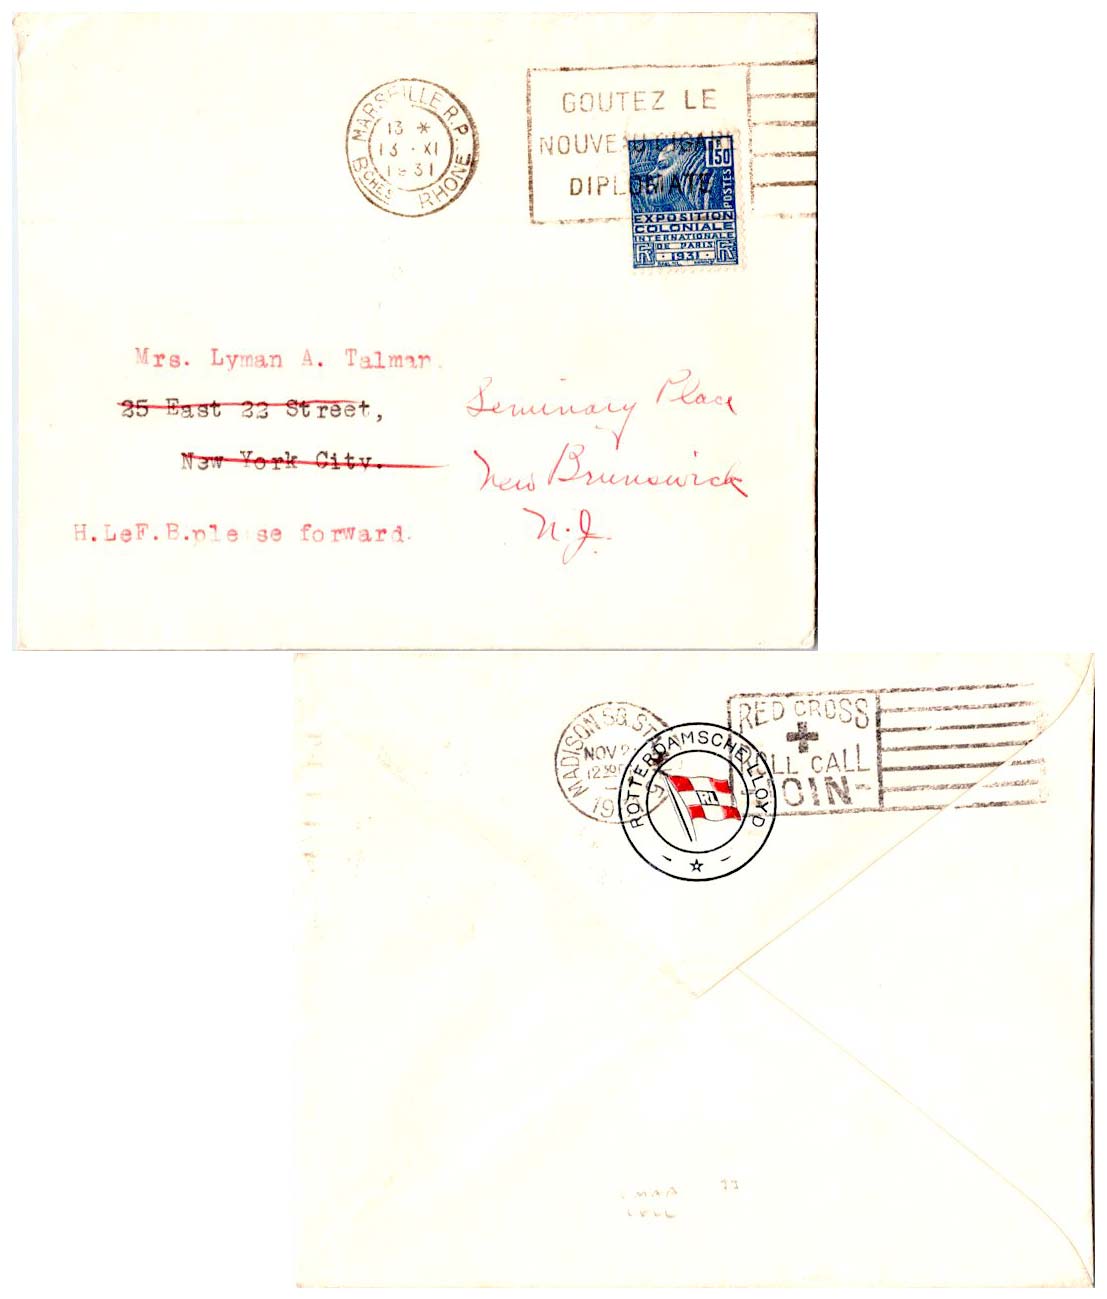 MARSEILLE R.P.
13 *
13 · XI
1931
BCHES RHONE
GOUTEZ LE
NOUVEAU CIGARE
DIPLOMATE
1F50
POSTES
EXPOSITION
COLONIALE
INTERNATIONALE
DE PARIS
· 1931 ·
Mrs. Lyman A. Talman.
25 East 22 Street,
New York City.
H.LeF.B.please forward.
Seminary Place
New Brunswick
N.J.
MADISON SQ. STA.
NOV 2
12
19
RED CROSS
ROLL CALL
JOIN-
ROTTERDAMSCHE LLOYD
RL